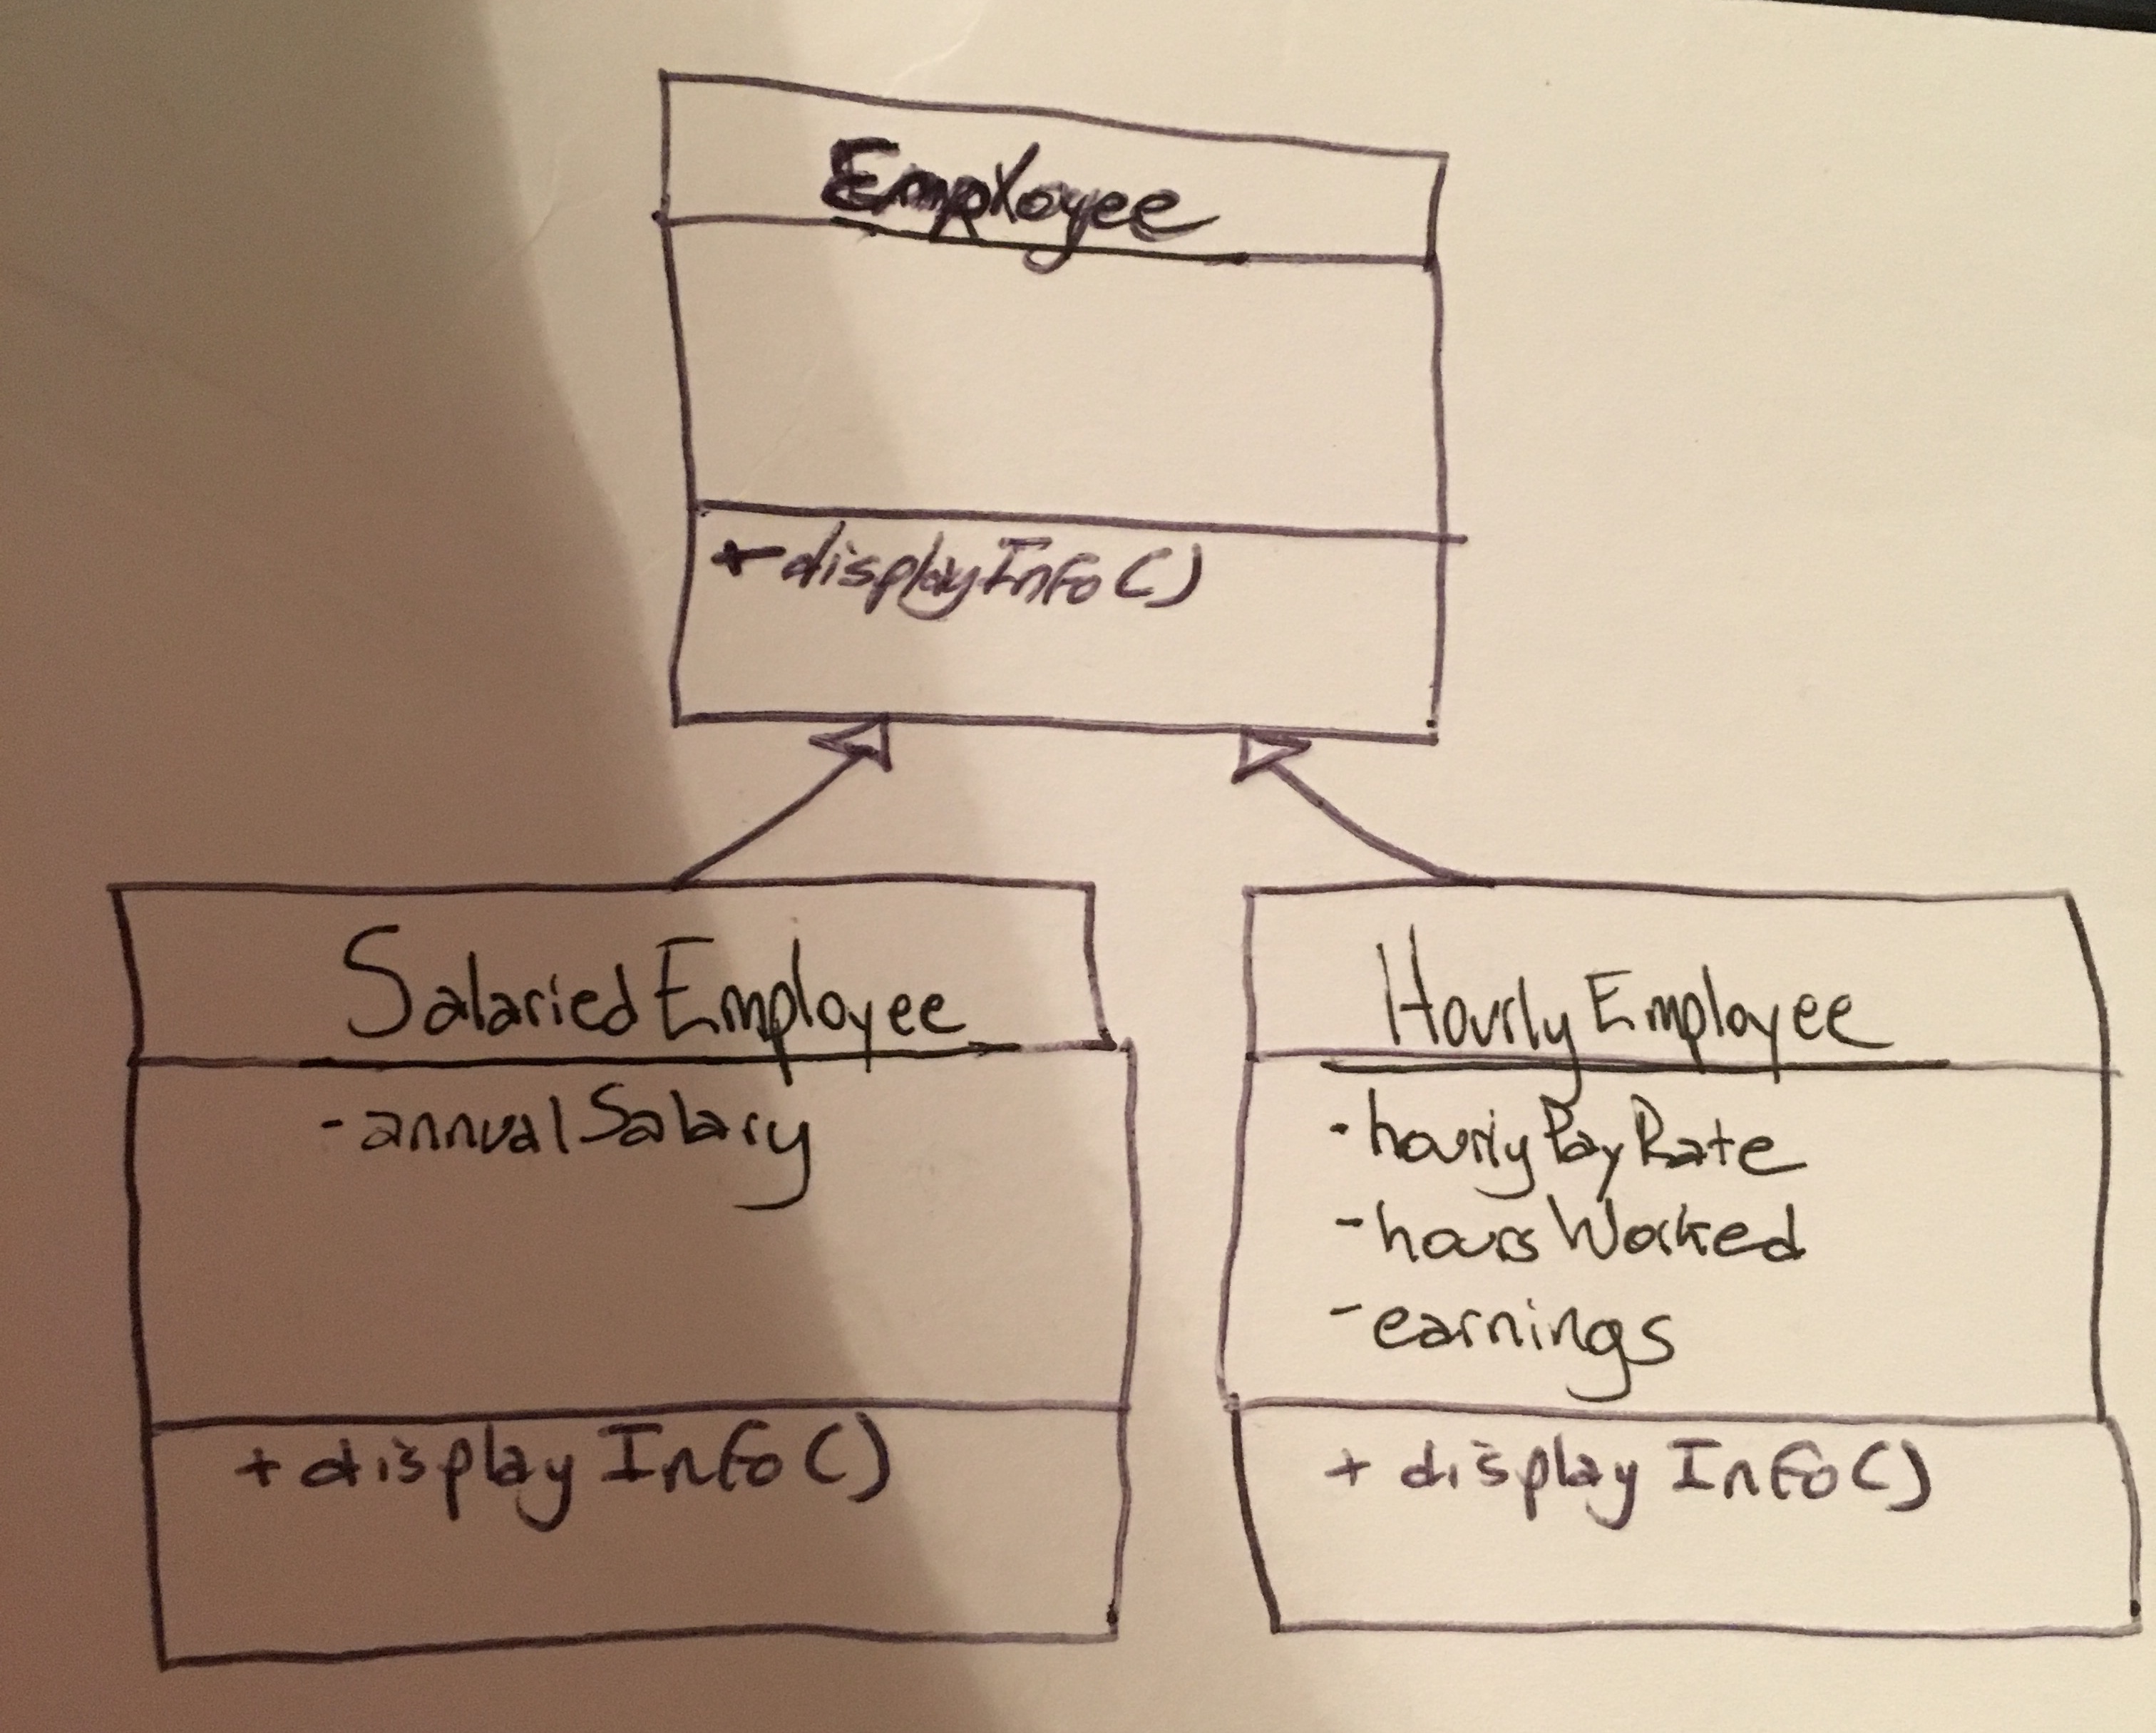 Employee
+displayInfo()
SalariedEmployee
-annualSalary
+displayInfo()
HourlyEmployee
-hourlyPayRate
-hoursWorked
-earnings
+displayInfo()